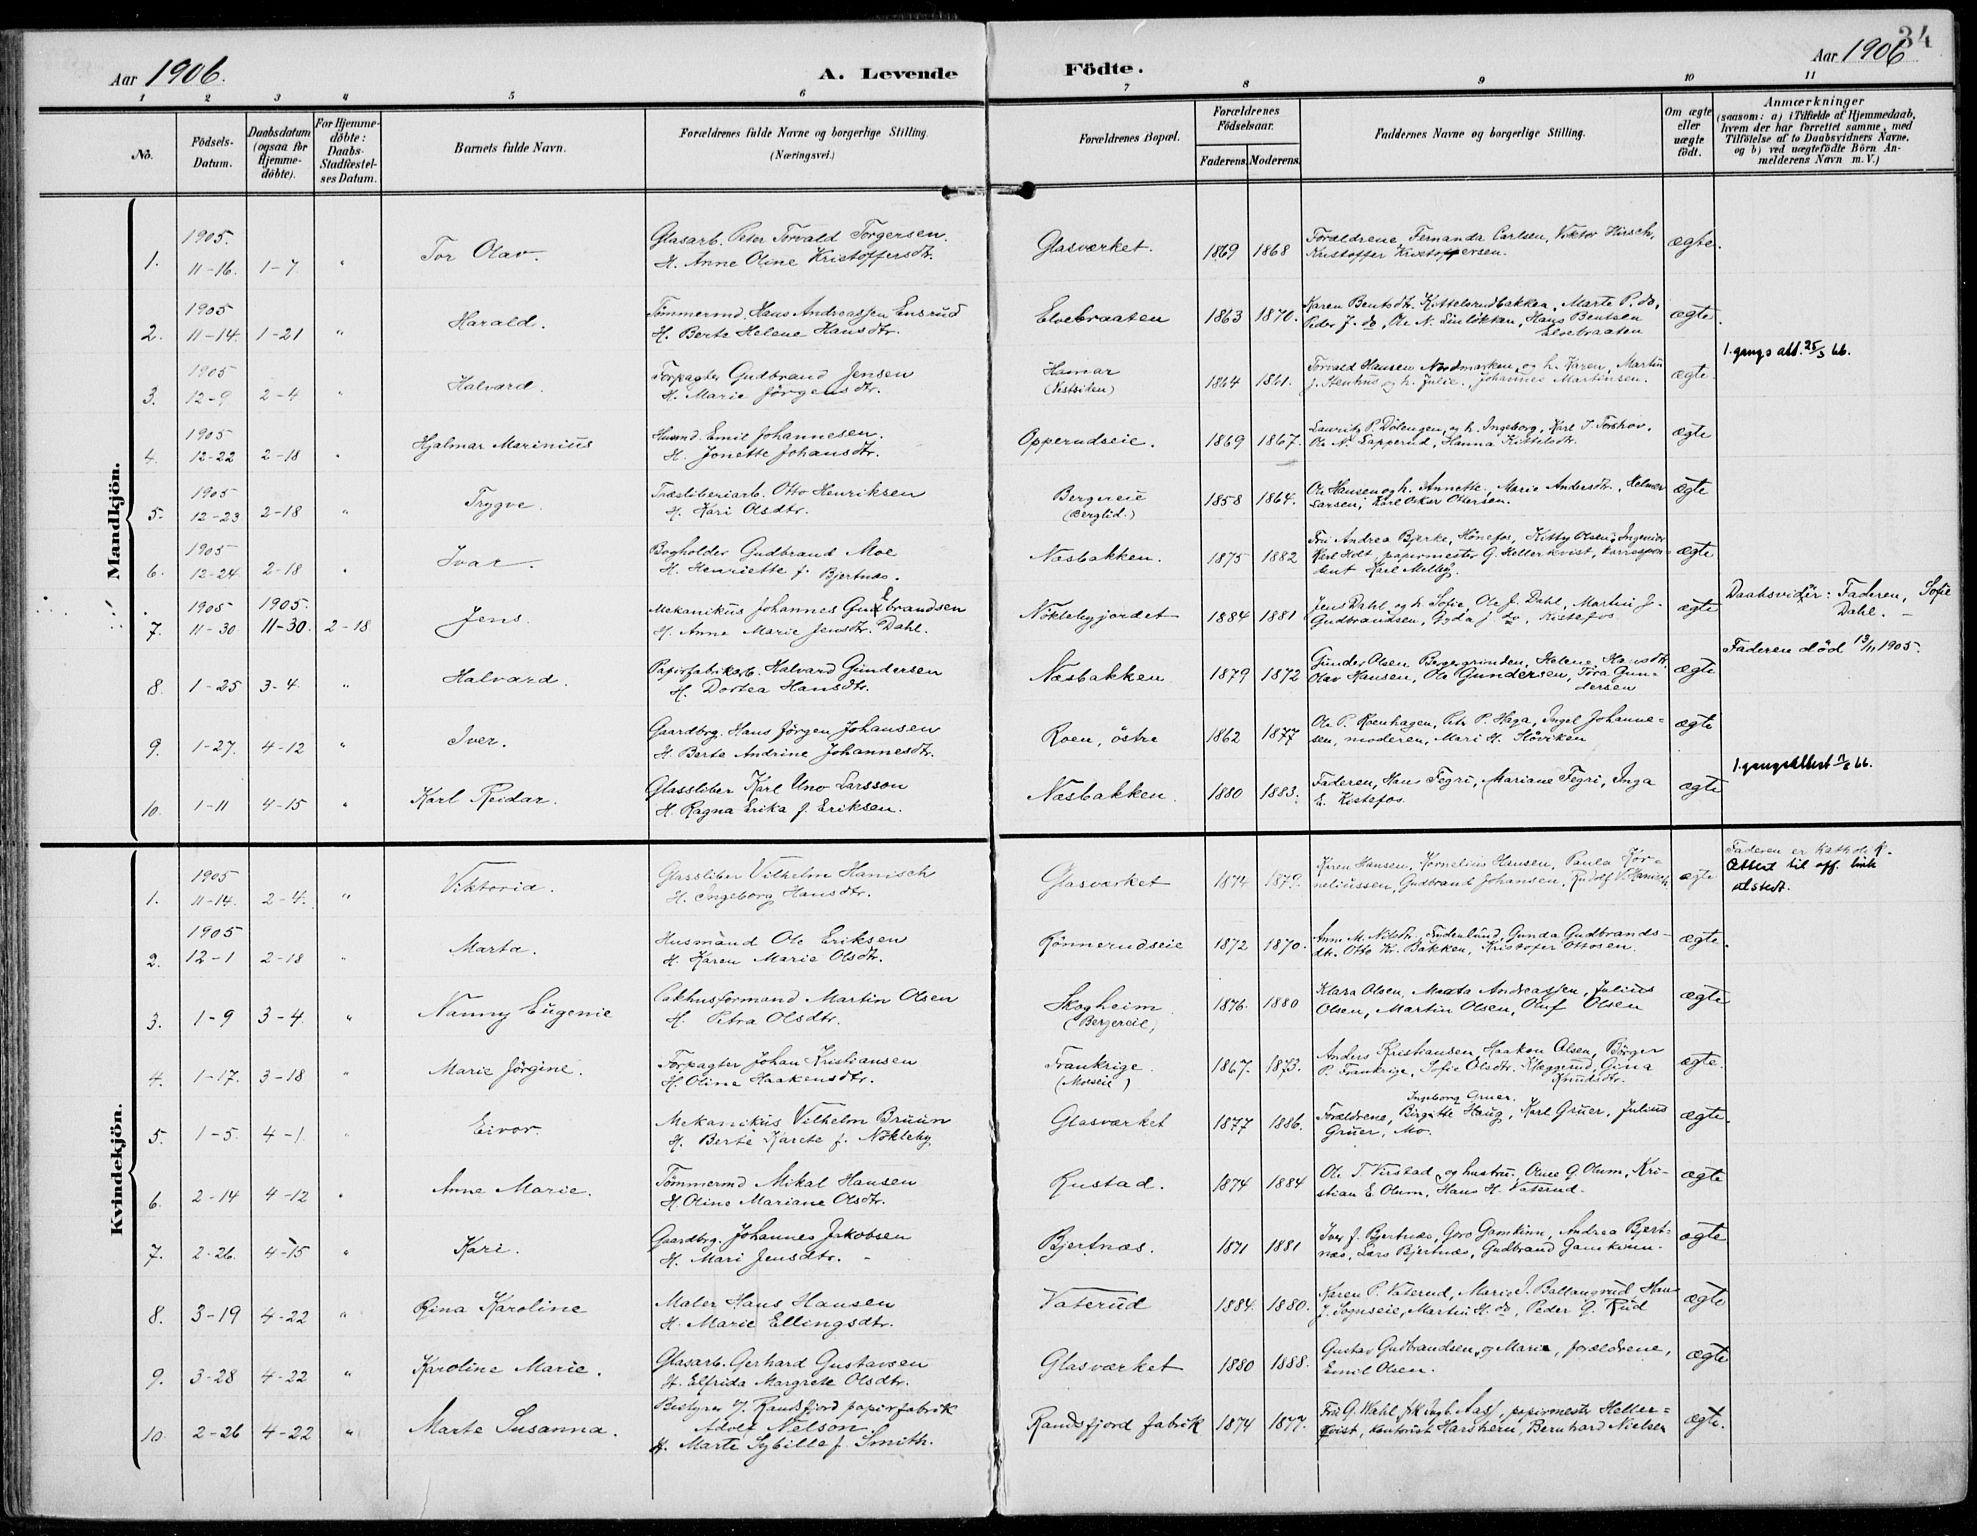 34
Aar 1906.
A. Levende
Födte.
Aar 1906
1 2 3 4 5 6 7 8 9 10 11
No.
Födsels-Datum.
Daabsdatum (ogsaa for Hjemmedöbte).
For Hjemmedöbte: Daabs-Stadfestelses Datum.
Barnets fulde Navn.
Forældrenes fulde Navne og borgerlige Stilling.
(Næringsvei.)
Forældrenes Bopæl.
Forældrenes Födselsaar.
Faderens. Moderens.
Faddernes Navne og borgerlige Stilling.
Om ægte eller uægte födt.
Anmærkninger
(saasom: a) i Tilfælde af Hjemmedaab, hvem der har forrettet samme, med Tilföielse af to Daabsvidners Navne, og b) ved uægtefödte Börn Anmelderens Navn m. V.)
Mandkjön.
1. 1905. 11-16. 1-7 " Tor Olav. Glasarb. Peter Torvald Torgersen. Glasværket. 1869 1868 Forældrene, Fernanda Carlsen, Viktor Hirsch, ægte.
H. Anne Oline Kristoffersdtr. Kristoffer Kristoffersen.
2. 1905 11-14. 1-21 " Harald. Tömmermd. Hans Andreassen Ensrud Elvebraaten 1863 1870. Karen Bentsdtr. Kittelsrudbakken, Marte P. do, ægte.
H. Berte Helene Hansdtr. Peder J. do, Ole N. Linløkken, Hans Bentsen
Elvebraaten
3. 1905 12-9 2-4 " Halvard. Forpagter Gudbrand Jensen Hamar 1864 1861. Torvald Hansen Nordmarken, og h. Karen, Martin ægte. 1.gangs att. 25/5 66.
H. Marie Jörgensdtr. (Vestsiden) J. Stenhus og h. Julie, Johannes Martinsen.
4. 1905 12-22 2-18 " Hjalmar Marinius Husmd. Emil Johannesen. Opperudseie. 1869 1867. Laurits P. Dölengen, og h. Ingeborg, Karl T. Forshov, ægte
H. Jonette Johansdtr. Ole N. Lapperud, Hanna Kittelsdtr.
5. 1905 12-23 2-18 " Trygve. Træsliberiarb. Otto Henriksen Bergereie 1858 1864. Ole Hansen og h. Annette, Marie Andersdtr., Helmer ægte
H. Kari Olsdtr. (Berglid.) Larsen, Karl Oskar Ottersen.
6. 1905 12-24. 2-18 " Ivar. Bogholder Gudbrand Moe Næsbakken. 1875 1882 Fru Andrea Bjerke, Hönefos, Kitty Olsen, Ingeniör ægte
H. Henriette f. Bjertnæs. Karl Holt, papirmester G. Hellerkvist, korrespon-
dent Karl Melby.
7. 1905 11-30 1905. 11-30. 2-18 Jens. Mekanikus Johannes Gudbrandsen Nöklebyjordet 1884 1881 Jens Dahl og h. Sofie, Ole J. Dahl, Martin J. ægte Daabsvidner: Faderen, Sofie
H. Anne Marie Jensdtr. Dahl. Gudbrandsen, Gyda J. do, Kistefos Dahl.
8. 1-25 3-4. " Halvard. Papirfabrikarb. Halvard Gundersen Næsbakken 1879 1872 Gunder Olsen Bergergrinden, Helene Hansdtr. ægte Faderen död 13/11 1905.
H. Dortea Hansdtr. Olav Hansen, Ole Gundersen, Tora Gun-
dersen
9. 1-27. 4-12 " Iver. Gaardbrg. Hans Jörgen Johansen Roen, östre 1862 1877 Ole P. Roenhagen, Petr P. Haga, Ingel Johanne- ægte
H. Berte Andrine Johannesdtr. sen, moderen, Mari H. Höviken
10. 1-11 4-15 " Karl Reidar. Glassliber Karl Uno Larsson Næsbakken. 1880 1883. Faderen, Hans Tegri, Mariane Tegri, Inga ægte 1.gangsattest 66.
H. Ragna Erika f. Eriksen. E. Kistefos.
Kvindekjön.
1. 1905 11-14. 2-4. " Viktoria. Glassliber Vilhelm Hanisch Glasværket 1874 1879. Karen Hansen, Kornelius Hansen, Paula Kor- ægte Faderen er katholik.
H. Ingeborg Hansdtr. neliussen, Gudbrand Johansen, Rudolf V. Hanisch Attest til off. bruk utstedt.
2. 1905 12-1 2-18 " Marta. Husmand Ole Eriksen Rönnerudseie 1872 1870. Anne M. Nilsdtr. Lindenlund, Gunda Gudbrands- ægte.
H. Karen Marie Olsdtr. dtr. Otto Kr. Bakken, Kristofer Ottosen.
3. 1-9 3-4. " Nanny Eugenie Pakhusformand Martin Olsen Skogheim 1876. 1880 Klara Olsen, Marta Andreassen, Julius ægte
H. Petra Olsdtr. (Bergereie) Olsen, Martin Olsen, Oluf Olsen
4. 1-17. 3-18 " Marie Jörgine. Forpagter Johan Kristiansen Frankrige. 1867. 1873. Anders Kristiansen, Haakon Olsen, Börger ægte.
H. Oline Haakensdtr. (Moseie) P. Frankrige, Sofie Olsdtr. Klæggerud, Gina
Knudsdtr.
5. 1-5. 4-1. " Eivor. Mekanikus Vilhelm Bruun Glasværket 1877 1886. Forældrene, Birgitte Haug, Ingeborg Gruer. Karl Gruer, Julius ægte.
H. Berte Karete f. Nökleby Gruer, Mo.
6. 2-14 4-12 " Anne Marie. Tömmermd Mikal Hansen Rustad. 1874 1884 Ole T. Virstad og hustru, Anne G. Olum, Kri- ægte
H. Oline Mariane Olsdtr. stian E. Olum, Hans H. Vaterud.
7. 2-26. 4-15 " Kari. Gaardbrg. Johannes Jakobsen Bjertnæs. 1871 1881 Iver J. Bjertnæs, Goro Gamkinn, Andrea Bjert- ægte
H. Mari Jensdtr. næs, Lars Bjertnæs, Gudbrand Gamkinn.
8. 3-19 4-22 " Rina Karoline Maler Hans Hansen Vaterud 1884. 1880. Karen P. Vaterud, Marie J. Ballangrud, Hans ægte
H. Marie Ellingsdtr. J. Sognseie, Martin H. do, Peder G. Rud
9. 3-28 4-22 " Karoline Marie. Glasarb. Gerhard Gustavsen Glasværket 1880 1888. Gustav Gudbrandsen og Marie, forældrene, ægte
H. Elfrida Margrete Olsdtr. Emil Olsen.
10. 2-26 4-22 " Marte Susanna. Bestyrer v/ Randsfjord papirfabrik Randsfjord fabrik 1874 1877. Fru G. Wahl, frk Ingb. Aas, papirmester Heller- ægte.
Adolf Nelson kvist, kontorist Harsheru, Bernhard Nielsen
H. Marte Sybille f. Smith.